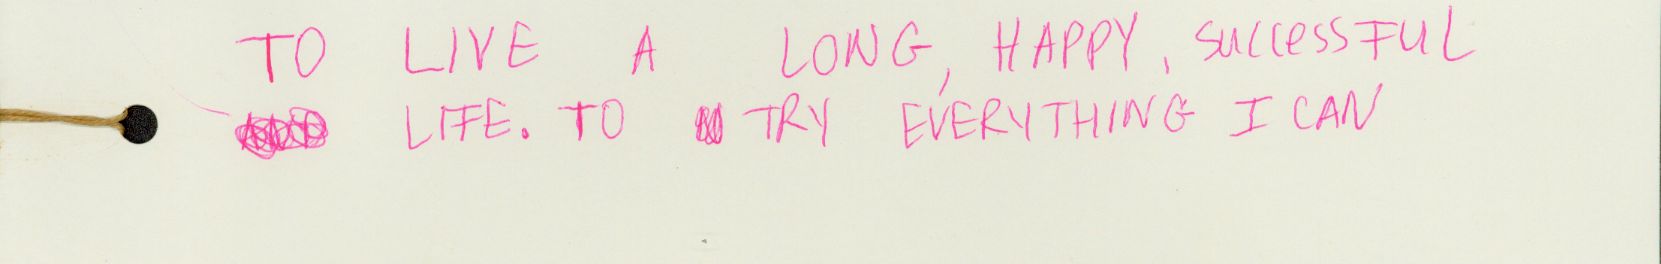 TO LIVE A LONG, HAPPY, SUCCESSFUL
LIFE. TO TRY EVERYTHING I CAN